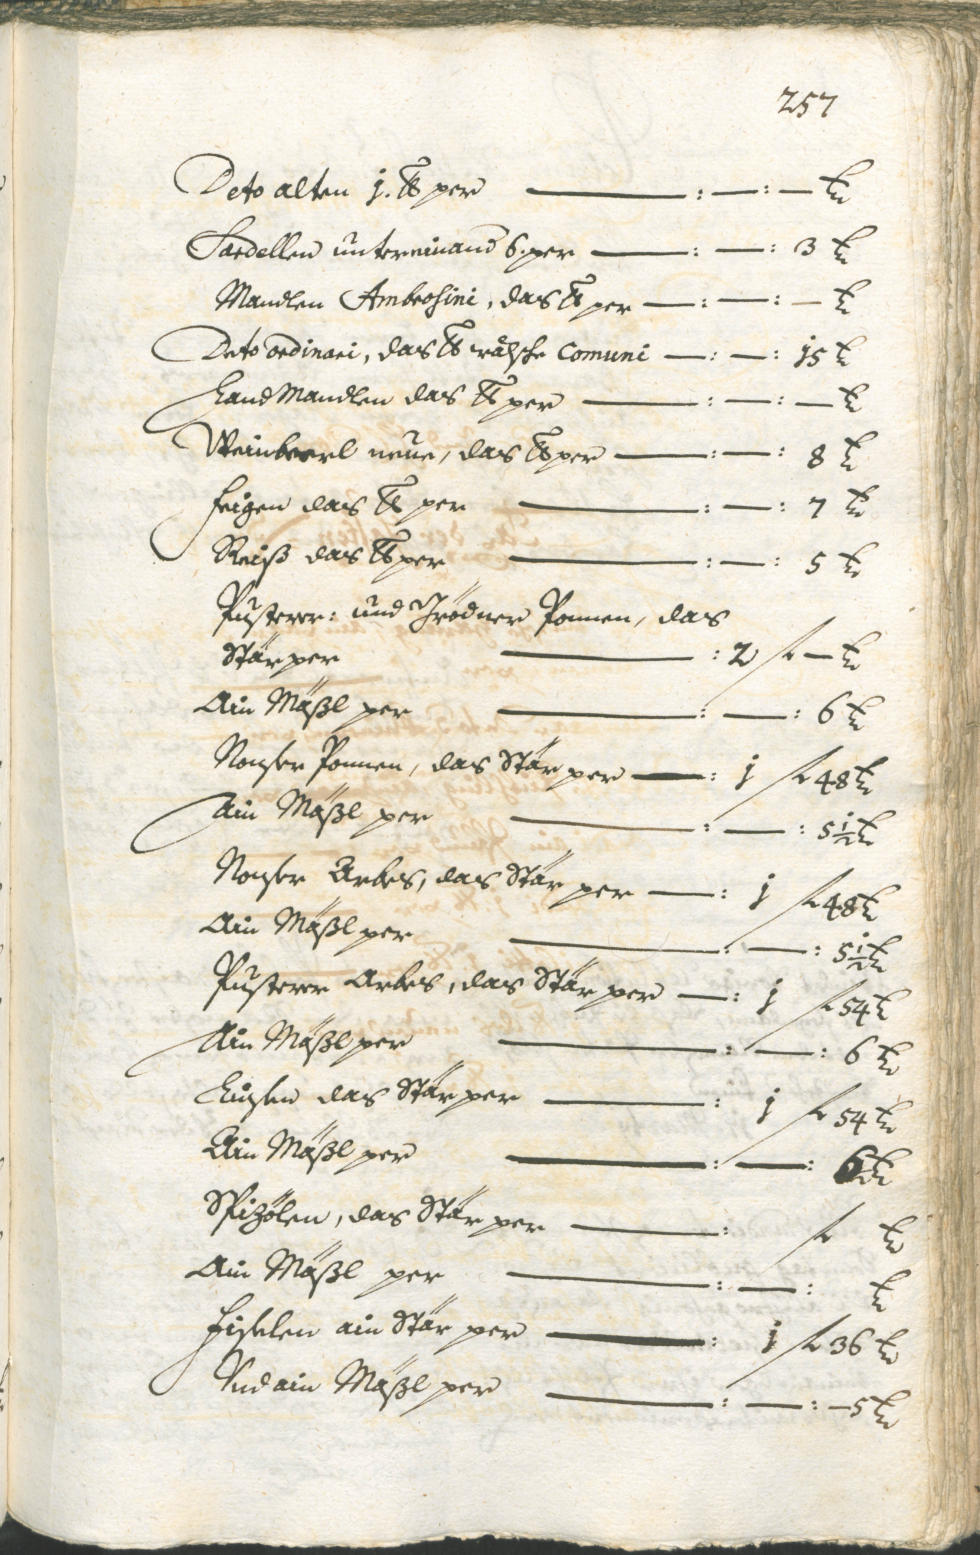 257
Deto alten j. ℔ per — : — : — kr
Sardellen untereinand 6. per — : — : 3 kr
Mandlen Ambrosini, das ℔ per — : — : — kr
Deto ordinari, das ℔ wälsche Comuni — : — : 15 kr
Landmandlen das ℔ per — : — : — kr
Weinbeerl neue, das ℔ per — : — : 8 kr
Feigen das ℔ per — : — : 7 kr
Reiß das ℔ per — : — : 5 kr
Pusterer: und Grödner Ponnen, das
Stär per — : 2 f — kr
Ain Mäßl per — : — : 6 kr
Nonser Ponnen, das Stär per — : j f 48 kr
Ain Mäßl per — : — : 5½ kr
Nonser Arbes, das Stär per — : j f 48 kr
Ain Mäßl per — : — : 5½ kr
Pusterer Arbes, das Stär per — : j f 54 kr
Ain Mäßl per — : — : 6 kr
Linsen das Stär per — : j f 54 kr
Ain Mäßl per — : — : 6 kr
das Stär per — : f kr
Ain Mäßl per — : — : kr
Fiselen ain Stär per — : j f 36 kr
Und ain Mäßl per — : — : — 5 kr